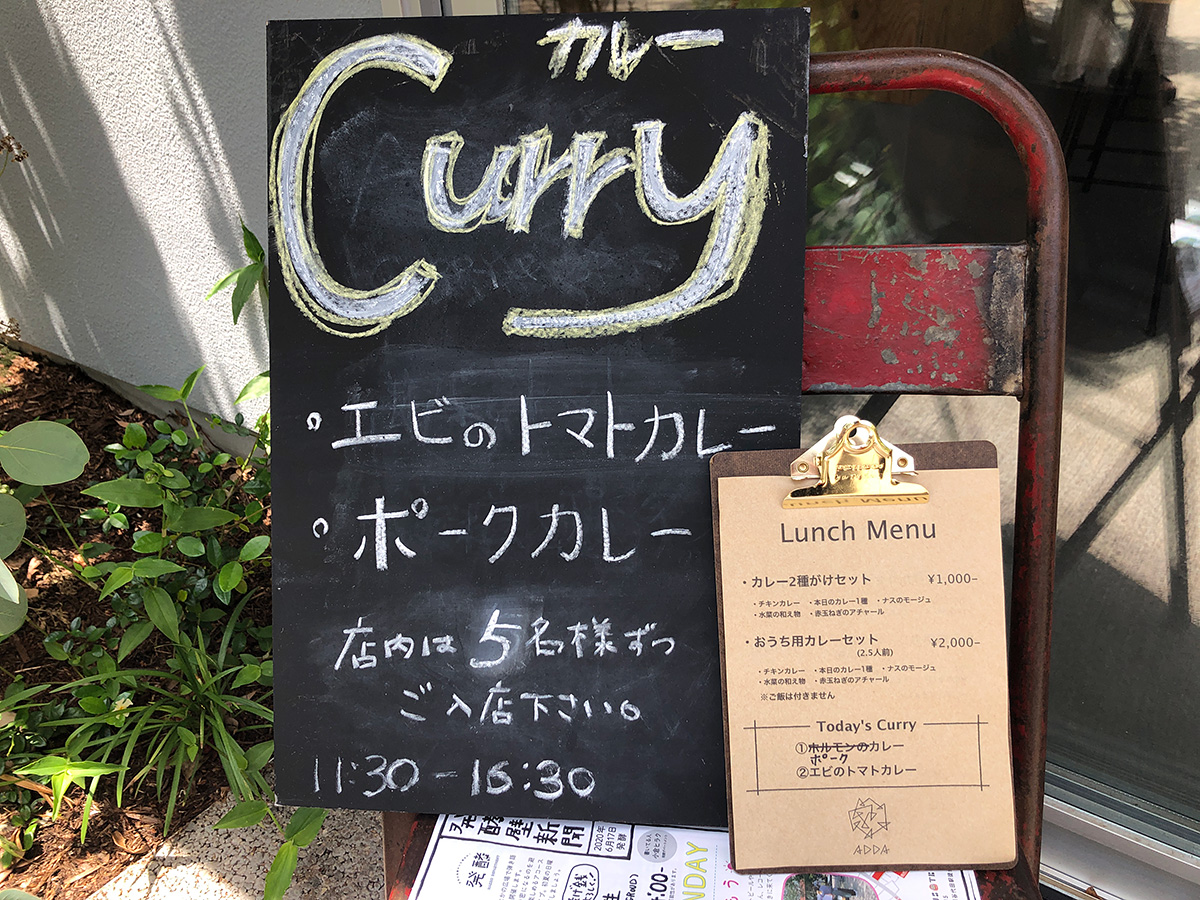 カレー
Curry
・エビのトマトカレー
・ポークカレー
店内は5名様ずつ
ご入店下さい。
11:30-15:30
Lunch Menu
・カレー2種がけセット ¥1,000-
・チキンカレー ・本日のカレー1種 ・ナスのモージュ
・水菜の和え物 ・赤玉ねぎのアチャール
・おうち用カレーセット ¥2,000-
(2.5人前)
・チキンカレー ・本日のカレー1種 ・ナスのモージュ
・水菜の和え物 ・赤玉ねぎのアチャール
※ご飯は付きません
Today's Curry
①ホルモンのカレー
ポーク
②エビのトマトカレー
ADDA
発酵壁新聞
2020年
6月17日
発酵
発酵
小倉ヒラク
NDAY